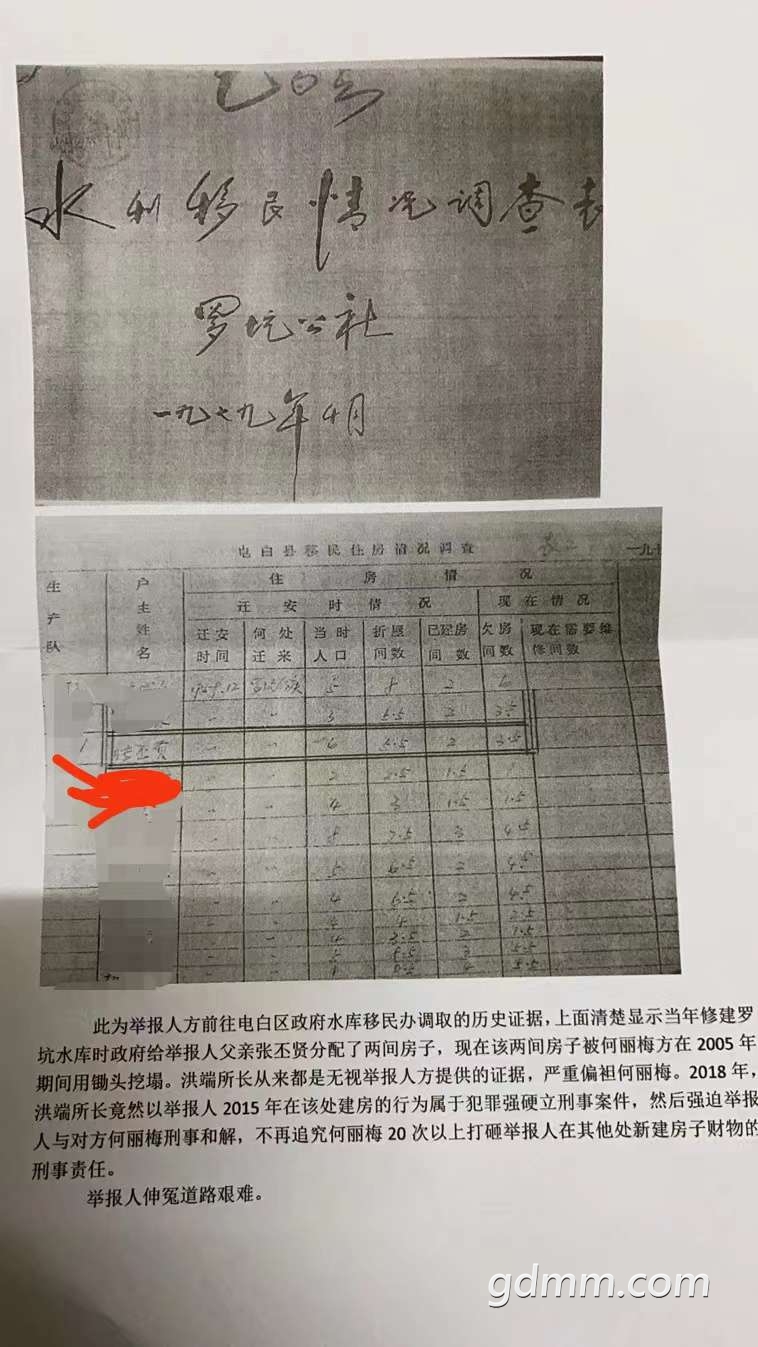 水利移民情况调查表
罗坑公社
一九七九年4月
电白县移民住房情况调查
一九七
生产队
户主姓名
住房情况
迁安时情况
现在情况
迁安时间
何处迁来
当时人口
折屋间数
已建房间数
欠房间数
现在需要维修间数
1958.12 5 8 2 6
〃 〃 3 5.5 2 3.5
〃 〃 6 5.5 2 3.5
〃 〃 2 2.5 1.5
〃 〃 4 3 1.5 1.5
〃 〃 8 7.5 3 4.5
〃 〃 5 6.5 2 4.5
〃 〃 4 6.5 2 4.5
此为举报人方前往电白区政府水库移民办调取的历史证据，上面清楚显示当年修建罗
坑水库时政府给举报人父亲张丕贤分配了两间房子，现在该两间房子被何丽梅方在 2005 年
期间用锄头挖塌。洪端所长从来都是无视举报人方提供的证据，严重偏袒何丽梅。2018 年，
洪端所长竟然以举报人 2015 年在该处建房的行为属于犯罪强硬立刑事案件，然后强迫举报
人与对方何丽梅刑事和解，不再追究何丽梅 20 次以上打砸举报人在其他处新建房子财物的
刑事责任。
举报人伸冤道路艰难。
gdmm.com